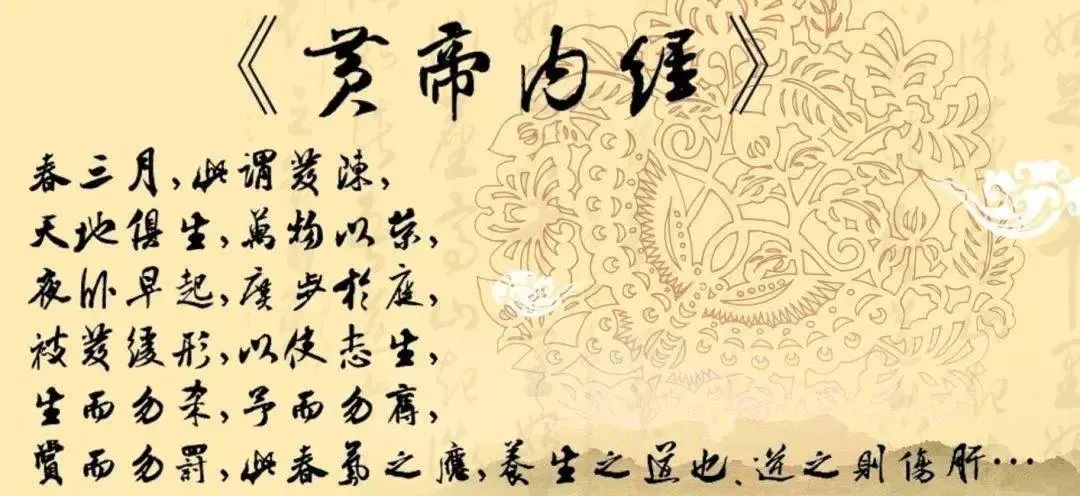 《黃帝内經》
春三月,此謂發陳,
天地俱生,萬物以榮,
夜卧早起,廣步於庭,
被發緩形,以使志生,
生而勿杀,予而勿奪,
賞而勿罰,此春氣之應,養生之道也、逆之則傷肝…